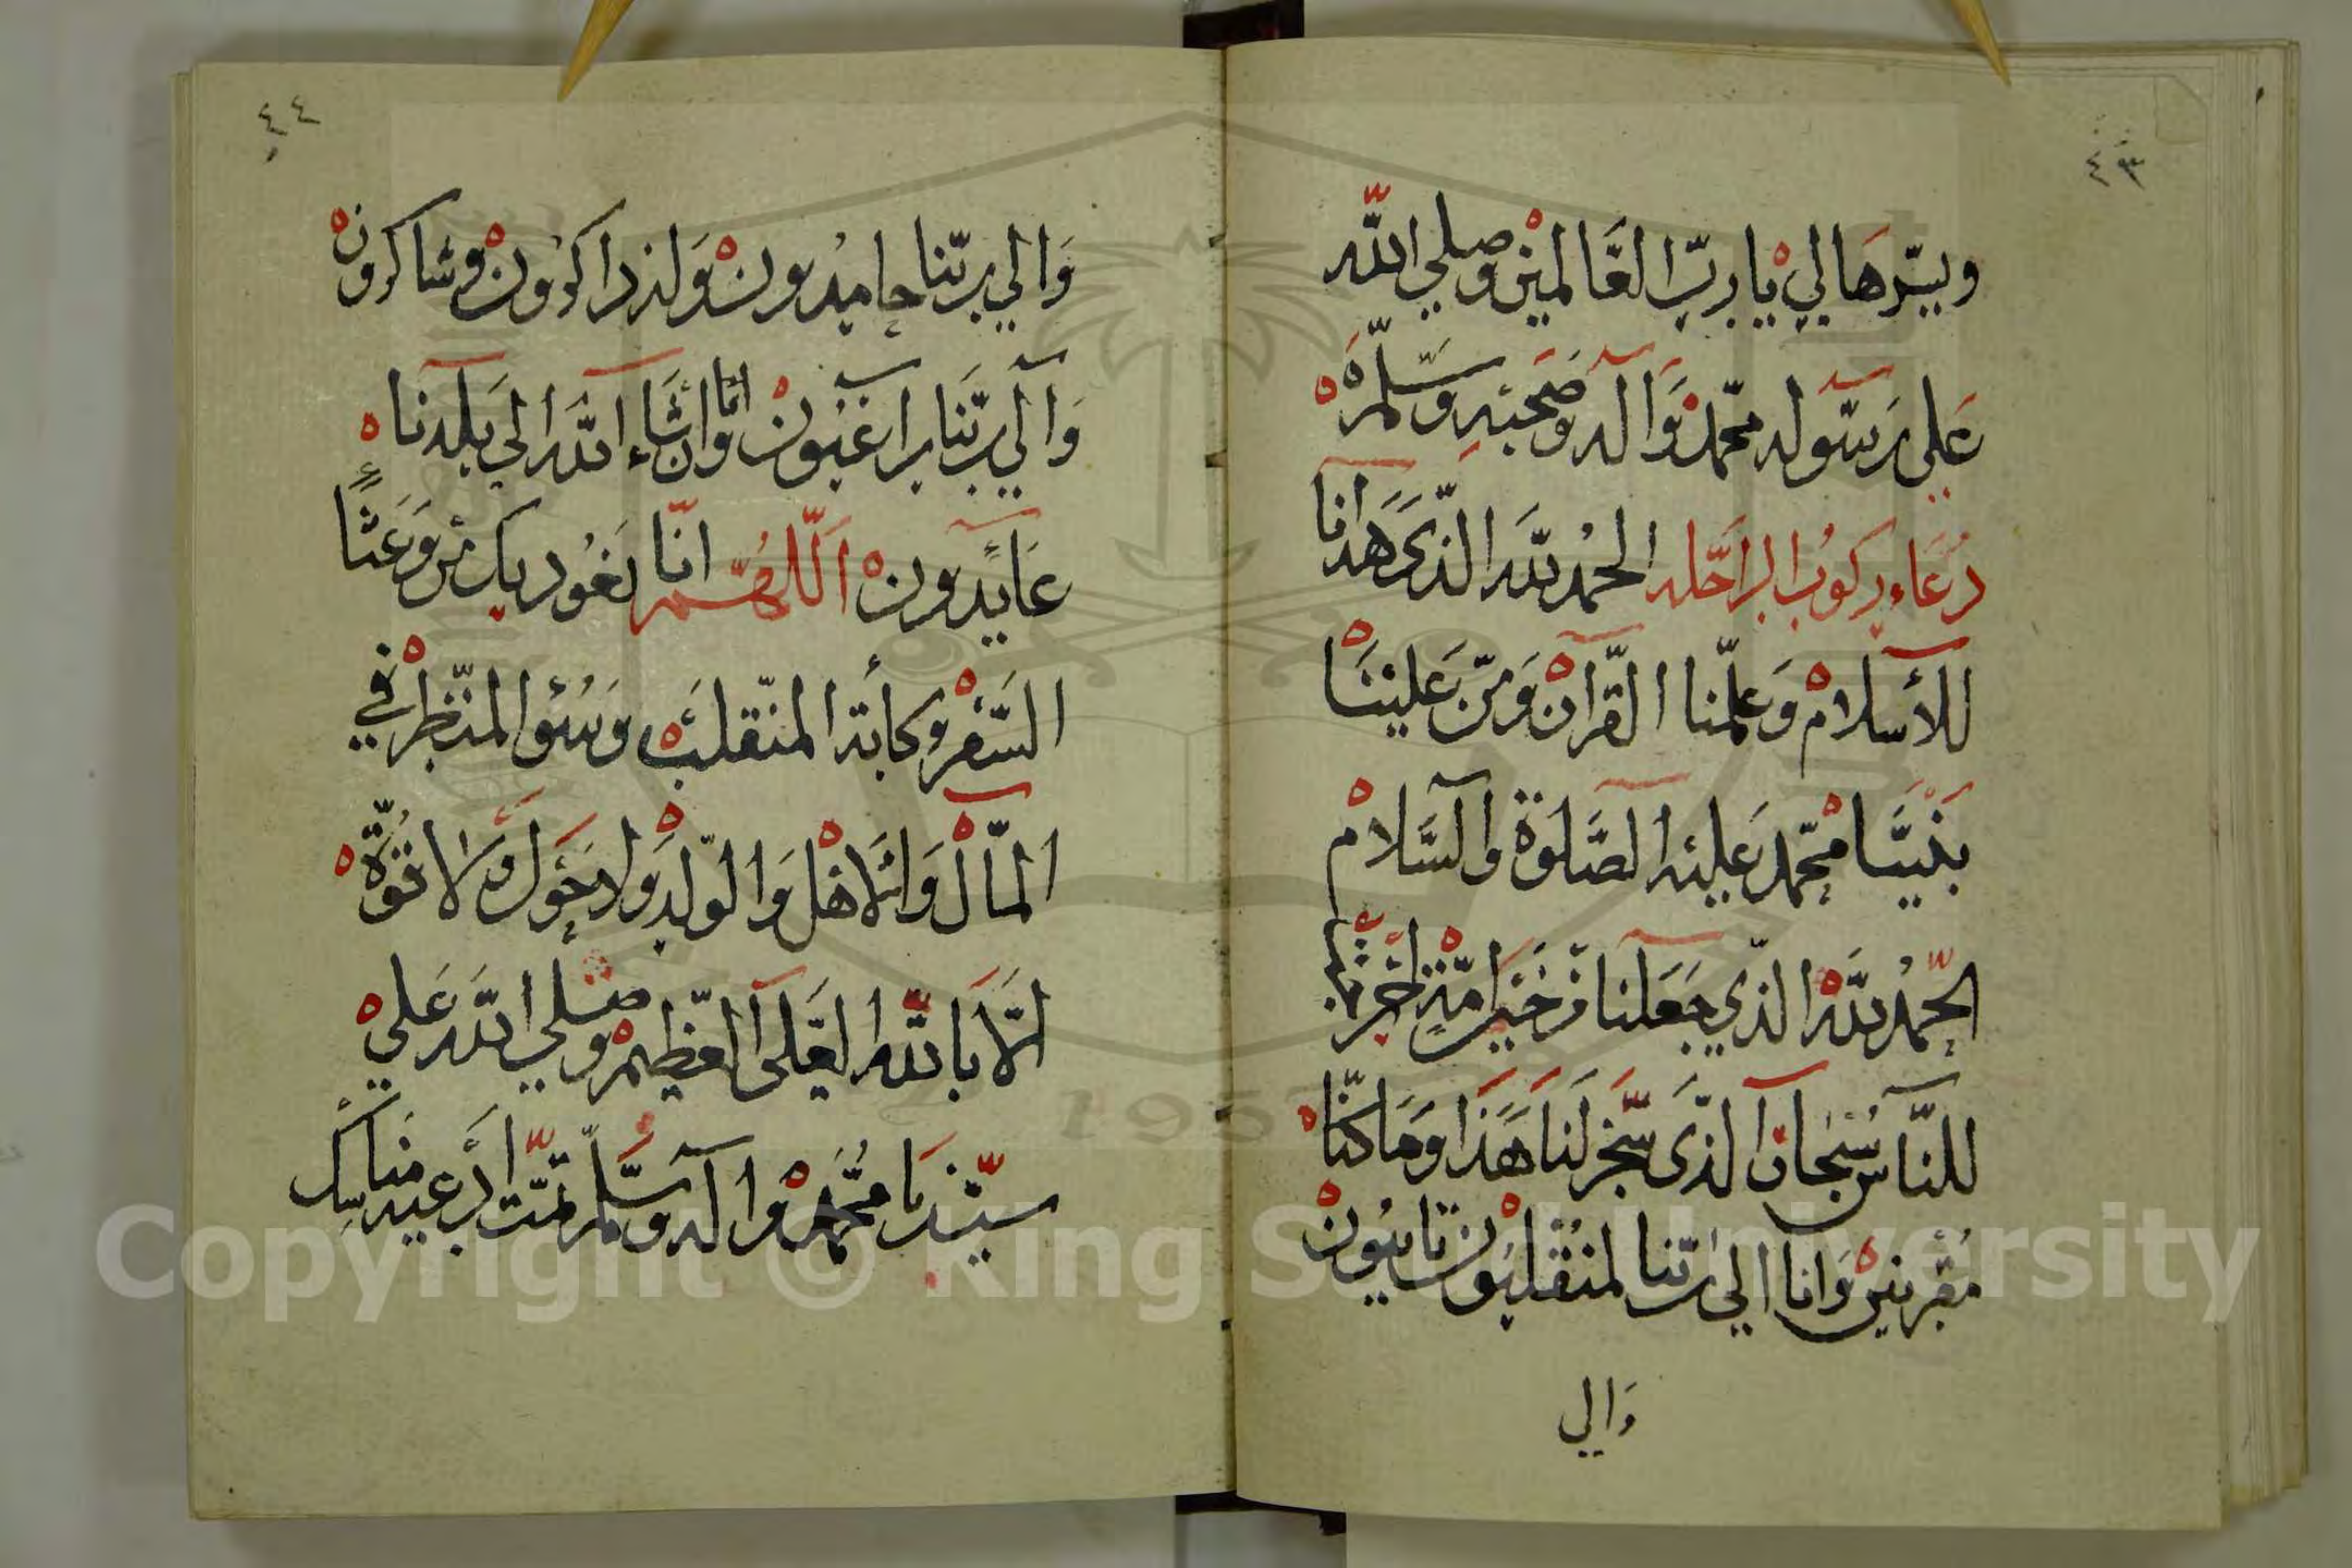 ٤٣
ويسّرها لي يا ربّ العالمين وصلي اللّه
على رسوله محمّد واله وصحبه وسلّم
دعاء ركوب الراحله الحمد للّه الذّي هدانا
للأسلام وعلّمنا القرآن ومنّ علينا
بنبيّنا محمّد عليه الصّلوة والسّلام
الحمد للّه الذّي جعلنا من خير امّة اخرجت
للنّاس سبحان الذّى سخّر لنا هذا وما كنّا
مقرنين وانا الى ربّنا لمنقلبون تايبون
والي
٤٤
والي ربّنا حامدون ولذ ذاكرون وشاكرون
والي ربّنا راغبون وانّا ان شاء اللّه الي بلدنا
عايدون اللّهم انّا نعوذ بك من وعثاء
السّفر وكأبة المنقلب وسوء المنظر في
المال والاهل والولد ولا حول ولا قوّة
الّا باللّه العلى العظيم وصلي اللّه علي
سيّدنا محمّد واله وسلّم تمّت ادعيه مناسك
Copyright © King Saud University
1957